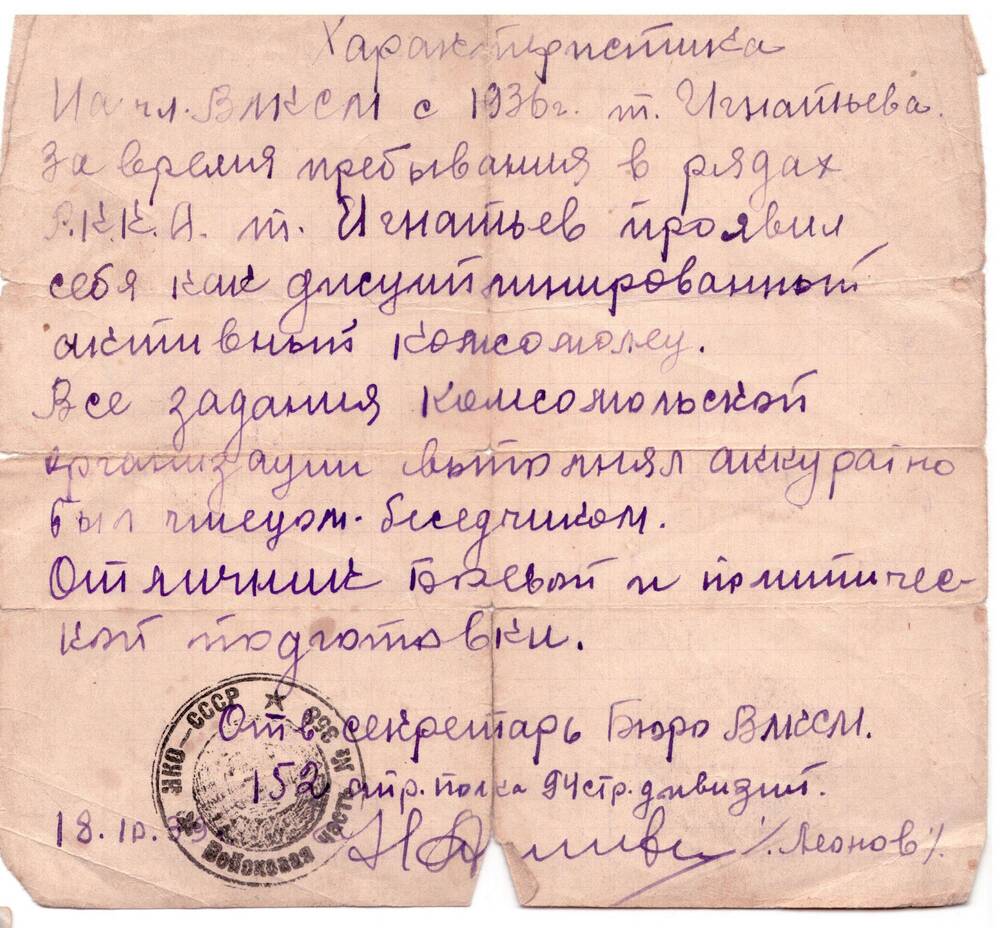 Характеристика
На чл. ВЛКСМ с 1936г. т. Игнатьева.
За время пребывания в рядах
Р.К.К.А. т. Игнатьев проявил
себя как дисциплинированный
активный комсомолец.
Все задания Комсомольской
организации выполнял аккуратно
был чтецом-беседчиком.
Отличник боевой и политичес-
кой подготовки.
Отв секретарь Бюро ВЛКСМ.
152 стр. полка 94 стр. дивизии.
18.10.39 /Леонов/.
НКО-СССР ★ № 358 ★ Войсковая часть